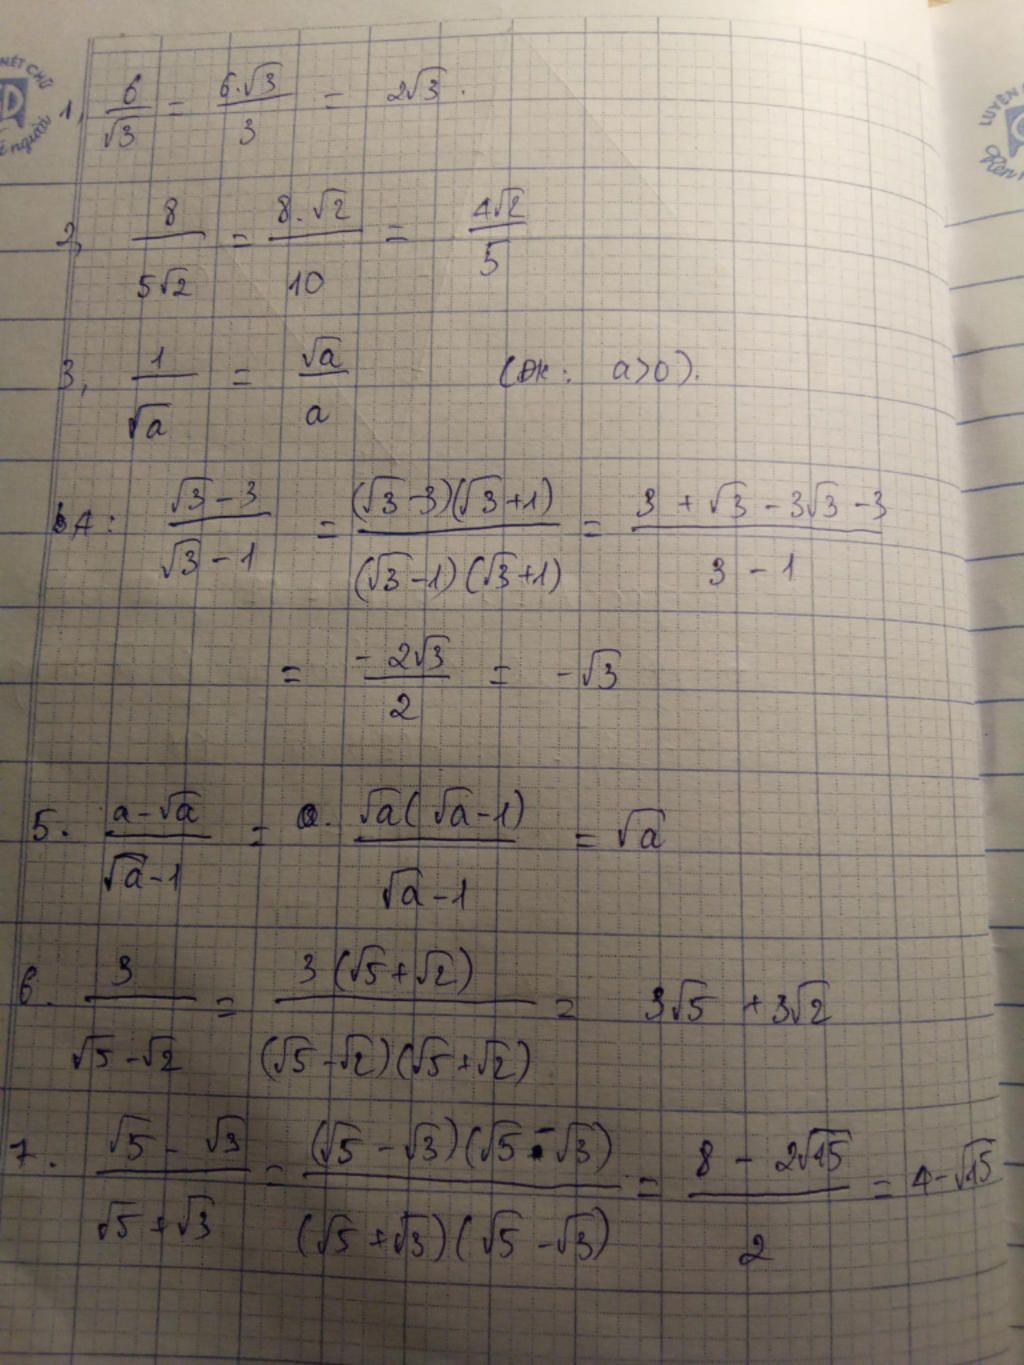 NÉT CHỮ
người
LUYỆN
Rèn
1, 6/√3 = 6.√3/3 = 2√3.
2, 8/5√2 = 8.√2/10 = 4√2/5
3, 1/√a = √a/a (ĐK: a>0).
4: √3-3/√3-1 = (√3-3)(√3+1)/(√3-1)(√3+1) = 3+√3-3√3-3/3-1
= -2√3/2 = -√3
5. a-√a/√a-1 = √a(√a-1)/√a-1 = √a
6. 3/√5-√2 = 3(√5+√2)/(√5-√2)(√5+√2) = 3√5+3√2
7. √5-√3/√5+√3 = (√5-√3)(√5-√3)/(√5+√3)(√5-√3) = 8-2√15/2 = 4-√15